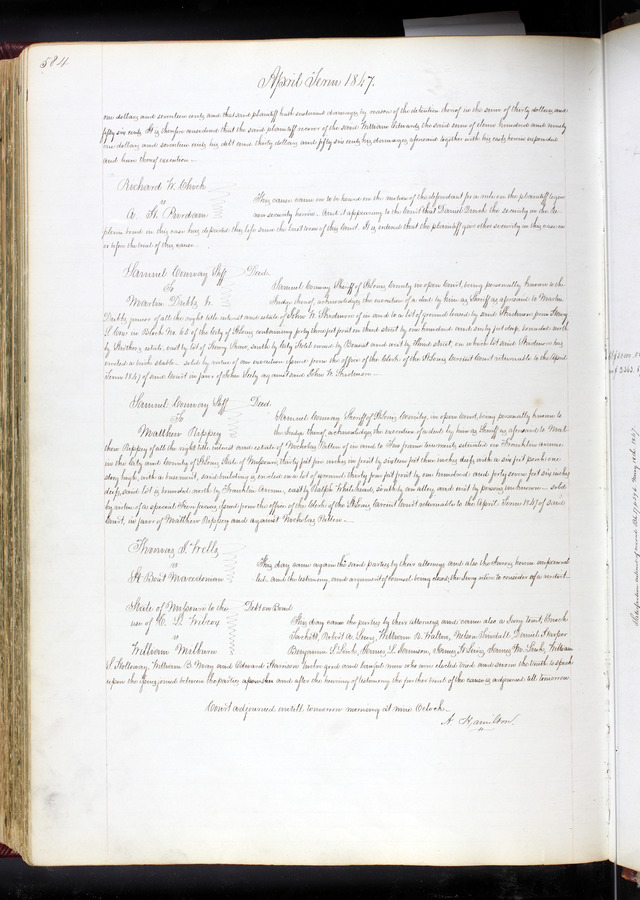 584
April Term 1847.
one dollars and seventeen cents and that said plaintiff hath sustained damages by reason of the detention thereof in the sum of thirty dollars and
fifty six cents. It is therefore considered that the said plaintiff recover of the said William Edwards the said sum of eleven hundred and ninety
one dollars and seventeen cents his debt and thirty dollars and fifty six cents his damages aforesaid together with his costs herein expended
and have thereof execution —
Richard W.
vs
A. H. Rurdam
This cause came on to be heard on the motion of the defendant for a rule on the plaintiff to give
new security herein. And it appearing to the Court that Daniel the security in the Re-
plevin bond in this case has departed this life since the last term of this Court. It is ordered that the plaintiff give other security in this case on
or before the trial of this cause.
Samuel Conway Shff
To
Martin Dubby Jr.
Deed.
Samuel Conway Sheriff of St Louis County in open Court, being personally known to the
Judge thereof, acknowledges the execution of a deed by him as Sheriff as aforesaid to Martin
Dubby junior of all the right title interest and estate of John W. Skidmore of in and to a lot of ground leased by said Skidmore from Henry
in Block No. 65 of the City of St Louis containing forty three feet front on third street by one hundred and six feet deep, bounded north
by estate, east by lot of Henry Shaw, south by City Hotel owned by Brant and west by Third street, on which lot said Skidmore has
erected a brick stable — sold by virtue of an execution issued from the office of the Clerk of the St Louis Circuit Court returnable to the April
Term 1847 of said Court in favor of John against said John W. Skidmore —
Samuel Conway Shff
To
Matthew Rippey
Deed
Samuel Conway Sheriff of St Louis County, in open court, being personally known to
the Judge thereof, acknowledges the execution of a deed by him as Sheriff as aforesaid to Mat-
thew Rippey of all the right title interest and estate of Nicholas Patten of in and to two frame tenements situated on Franklin avenue
in the City and County of St Louis, State of Missouri, thirty feet five inches in front by sixteen feet three inches deep, with a six feet porch one
story high, with a basement, said building is erected on a lot of ground thirty four feet front by one hundred and forty seven feet six inches
deep, said lot is bounded north by Franklin Avenue, east by Ralph Whitehead, south by an alley, and west by persons unknown — sold
by virtue of a special Fieri facias issued from the office of the Clerk of the St Louis Circuit Court returnable to the April Term 1847 of said
Court, in favor of Matthew Rippey and against Nicholas Patten —
Thomas J. Wells
vs
St Boat Macedonian
This day came again the said parties by their attorneys and also the Jurors herein empannel-
led and the testimony and arguments of Counsel being closed, the Jury retire to consider of a verdict —
State of Missouri to the
use of C. L. Wilcox
vs
William Milburn
Debt on Bond
This day came the parties by their attorneys and came also a Jury to wit, Enoch
Sackett, Robert A. Lewis, William B. Walton, Nelson Daniel Harper
Benjamin S. James L. Harrison, James H. Lewis, James M. William
S. Holloway, William B. and Edward Harrison twelve good and lawful men who were elected tried and sworn the truth to speak
upon the issues joined between the parties aforesaid and after the hearing of testimony the further trial of the cause is adjourned till tomorrow
Court adjourned untill tomorrow morning at nine Oclock —
A. Hamilton